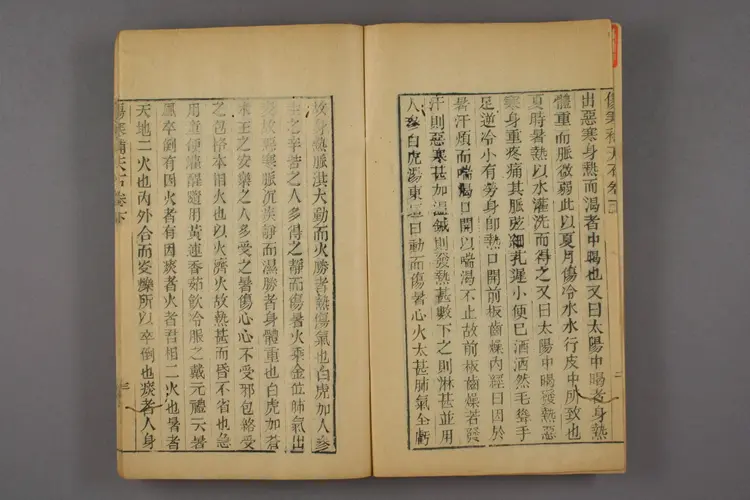 傷寒補天石卷下
出惡寒身熱而渴者中暍也又曰太陽中暍者身熱
體重而脈微弱此以夏月傷冷水水行皮中所致也
夏時暑熱以水灌洗而得之又曰太陽中暍發熱惡
寒身重疼痛其脈弦細孔遲小便已洒洒然毛聳手
足逆冷小有勞身即熱口開前板齒燥內經曰因於
暑汗煩而喘喝口開以喘渴不止故前板齒燥若發
汗則惡寒甚加溫鍼則發熱甚數下之則淋甚並用
人參白虎湯東垣曰動而傷暑心火太甚肺氣全虧
故身熱脈洪大動而火勝者熱傷氣也白虎加人參
主之辛苦之人多得之靜而傷暑火乘金位肺氣出
表故惡寒脈沉疾靜而濕勝者身體重也白虎加蒼
朮主之安樂之人多受之暑傷心心不受邪包絡受
之包絡本相火也以火濟火故熱甚而昏不省也急
用童便灌醒還用黃連香茹飲冷服之戴元禮云暑
風卒倒有因火者有因痰者火者君相二火也暑者
天地二火也內外合而炎爍所以卒倒也痰者人身
傷寒補天石卷下
三